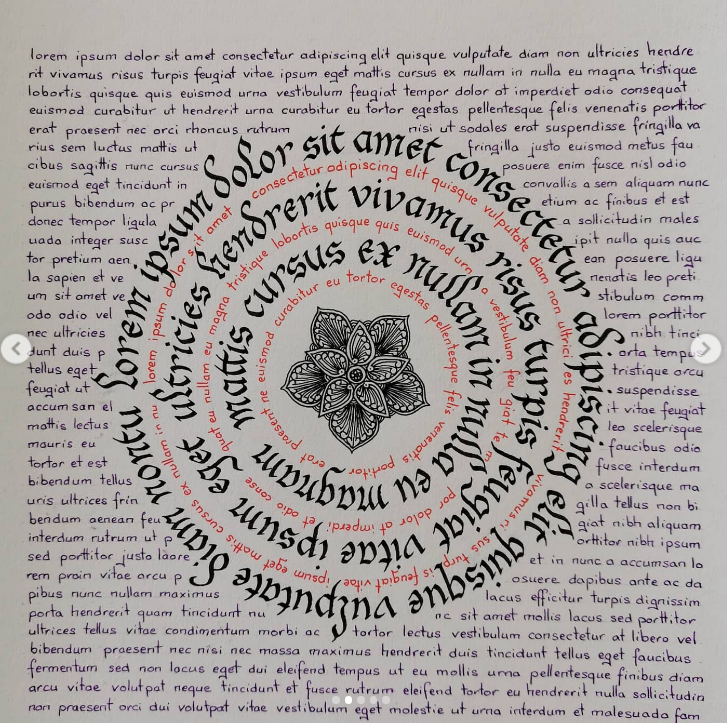 lorem ipsum dolor sit amet consectetur adipiscing elit quisque vulputate diam non ultricies hendre
rit vivamus risus turpis feugiat vitae ipsum eget mattis cursus ex nullam in nulla eu magna tristique
lobortis quisque quis euismod urna vestibulum feugiat tempor dolor at imperdiet odio consequat
euismod curabitur ut hendrerit urna curabitur eu tortor egestas pellentesque felis venenatis porttitor
erat praesent nec orci rhoncus rutrum nisi ut sodales erat suspendisse fringilla va
rius sem luctus mattis ut fringilla justo euismod metus fau
cibus sagittis nunc cursus posuere enim fusce nisl odio
euismod eget tincidunt in convallis a sem aliquam nunc
purus bibendum ac pr etium ac finibus et est
donec tempor ligula a sollicitudin males
uada integer susc ipit nulla quis auc
tor pretium aen ean posuere ligu
la sapien et ve nenatis leo preti
um sit amet ve stibulum comm
odo odio vel lorem porttitor
nec ultricies nibh tinci
dunt duis p orta tempus
tellus eget tristique arcu
feugiat ut suspendisse
accumsan el it vitae feugiat
mattis lectus leo scelerisque
mauris eu faucibus odio
tortor et est fusce interdum
bibendum tellus a scelerisque ma
uris ultrices frin gilla tellus non bi
bendum aenean feu giat nibh aliquam
interdum rutrum ut p orttitor nibh ipsum
sed porttitor justo laore et in nunc a accumsan la
rem proin vitae arcu p osuere dapibus ante ac da
pibus nunc nullam maximus lacus efficitur turpis dignissim
porta hendrerit quam tincidunt nu nc sit amet mollis lacus sed porttitor
ultrices tellus vitae condimentum morbi ac tortor lectus vestibulum consectetur at libero vel
bibendum praesent nec nisi nec massa maximus hendrerit duis tincidunt tellus eget faucibus
fermentum sed non lacus eget dui eleifend tempus ut eu mollis urna pellentesque finibus diam
arcu vitae volutpat neque tincidunt et fusce rutrum eleifend tortor eu hendrerit nulla sollicitudin
non praesent orci dui volutpat vitae vestibulum eget molestie ut urna interdum et malesuada fam
lorem ipsum dolor sit amet consectetur adipiscing elit quisque vulputate diam nontu
lorem ipsum dolor sit amet consectetur adipiscing elit quisque vulputate diam non ultrici es hendrerit vivamus ri sus turpis feugiat vitae ipsum eget mattis cursus ex nullam in nu
ultricies hendrerit vivamus risus turpis feugiat vitae ipsum eget
nullam eu magna tristique lobortis quisque quis euismod urn a vestibulum feu giat te m por dolor at imperdi et odio conse quat e
mattis cursus ex nullam in nulla eu magnam
euismod curabitur eu tortor egestas pellentesque felis venenatis portitor erat praesent ne